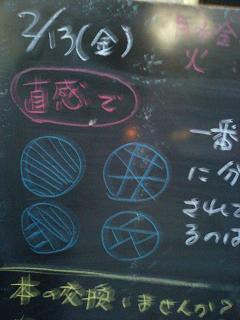 2/13(金)
火
直感で
一番
に分
されて
るのは
本の交換しませんか?